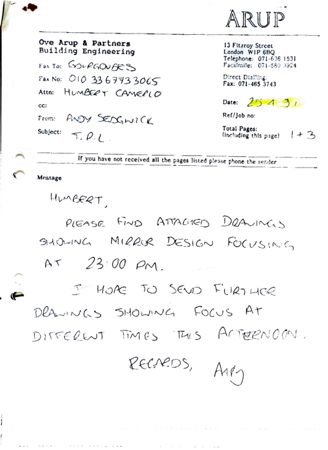 ARUP
Ove Arup & Partners
Building Engineering
13 Fitzroy Street
London W1P 6BQ
Telephone: 071-636 1531
Facsimile: 071-580 3924
Direct Dialling:
Fax: 071-465 3743
Fax To: GOURGOUBES
Fax No: 010 3367733065
Attn: HUMBERT CAMERLO
cc:
From: ANDY SEDGWICK
Subject: T.P.L.
Date: 25.1.91
Ref/Job no:
Total Pages:
(including this page) 1+3
If you have not received all the pages listed please phone the sender
Message
HUMBERT,
PLEASE FIND ATTACHED DRAWINGS
SHOWING MIRROR DESIGN FOCUSING
AT 23:00 PM.
I HOPE TO SEND FURTHER
DRAWINGS SHOWING FOCUS AT
DIFFERENT TIMES THIS AFTERNOON.
REGARDS, Andy